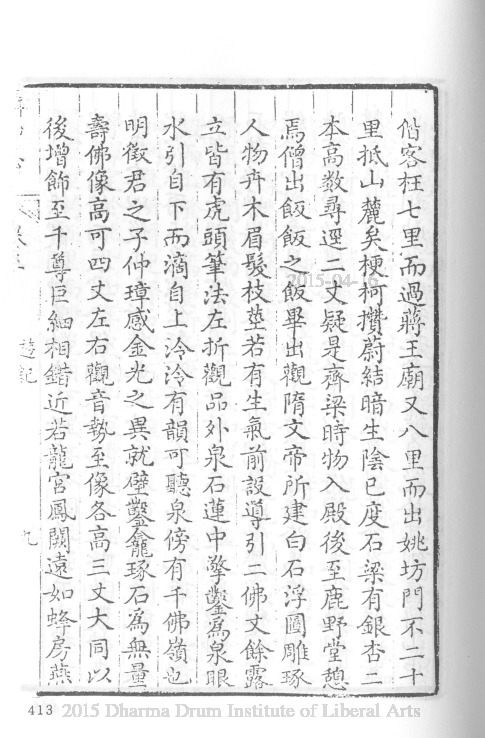 偕客枉七里而過蔣王廟又八里而出姚坊門不二十
里抵山麓矣梗柯攢蔚結暗生陰已度石梁有銀杏二
本高数尋逕二丈疑是齊梁時物入殿後至鹿野堂憩
焉僧出飯飯之飯畢出觀隋文帝所建白石浮圖雕琢
人物卉木眉髮枝莖若有生氣前設導引二佛丈餘露
立皆有虎頭筆法左折觀品外泉石蓮中擎鑿為泉眼
水引自下而滴自上泠泠有韻可聽泉傍有千佛嶺也
明徵君之子仲璋感金光之異就壁鑿龕琢石為無量
壽佛像高可四丈左右觀音勢至像各高三丈大同以
後增飾至千尊巨細相錯近若龍宮鳳闕遠如蜂房燕
遊記
九
2015-04-16
413 2015 Dharma Drum Institute of Liberal Arts